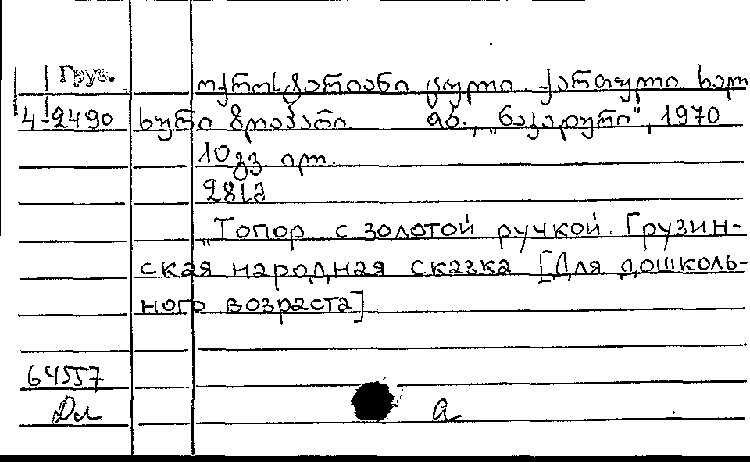 Груз.
ოქროსტარიანი ცული ქართული ხალ
4-2490 ხური ზღაპარი თბ., „ნაკადული", 1970
10 გვ ილ.
„Топор с золотой ручкой. Грузин-
ская народная сказка [Для дошколь-
ного возраста]
64557
Дл а